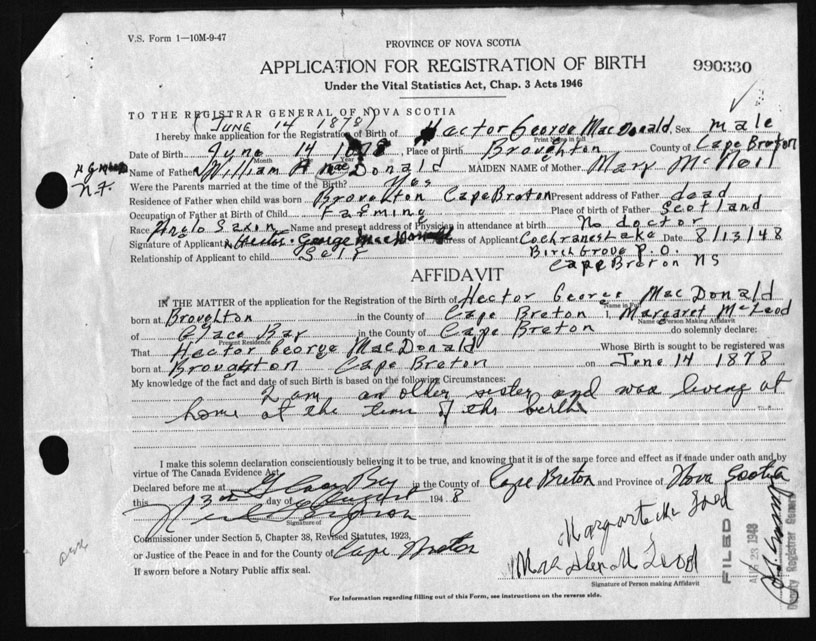 V.S. Form 1—10M-9-47
PROVINCE OF NOVA SCOTIA
APPLICATION FOR REGISTRATION OF BIRTH 990330
Under the Vital Statistics Act, Chap. 3 Acts 1946
TO THE REGISTRAR GENERAL OF NOVA SCOTIA
(JUNE 14 1878)
I hereby make application for the Registration of Birth of Hector George MacDonald Sex male
Print Name in full
Date of Birth June 14 1878, Place of Birth Broughton County of Cape Breton
Month Year
Name of Father William A MacDonald MAIDEN NAME of Mother Mary McNeil
N.F.
Were the Parents married at the time of the Birth? Yes
Residence of Father when child was born Broughton Cape Breton Present address of Father dead
Occupation of Father at Birth of Child farming Place of birth of Father Scotland
Race Anglo Saxon Name and present address of Physician in attendance at birth No doctor
Signature of Applicant Hector George MacDonald Address of Applicant Cochranes Lake Date 8/13/48
Relationship of Applicant to child Self Birch Grove P.O.
Cape Breton NS
AFFIDAVIT
IN THE MATTER of the application for the Registration of the Birth of Hector George MacDonald
Name in Full
born at Broughton in the County of Cape Breton I, Margaret McLeod
Name of Person Making Affidavit
of Glace Bay in the County of Cape Breton do solemnly declare:
Present Residence
That Hector George MacDonald Whose Birth is sought to be registered was
born at Broughton Cape Breton on June 14 1878
My knowledge of the fact and date of such Birth is based on the following Circumstances:
I am an older sister and was living at
home at the time of this birth
I make this solemn declaration conscientiously believing it to be true, and knowing that it is of the same force and effect as if made under oath and by
virtue of The Canada Evidence Act.
Declared before me at Glace Bay in the County of Cape Breton and Province of Nova Scotia
this 13th day of August 1948
Signature of
Commissioner under Section 5, Chapter 38, Revised Statutes, 1923,
or Justice of the Peace in and for the County of Cape Breton
If sworn before a Notary Public affix seal.
Margaret Mc Leod
Mrs Alex McLeod
Signature of Person making Affidavit
FILED
AUG 23 1948
Deputy Registrar General
For Information regarding filling out of this Form, see instructions on the reverse side.